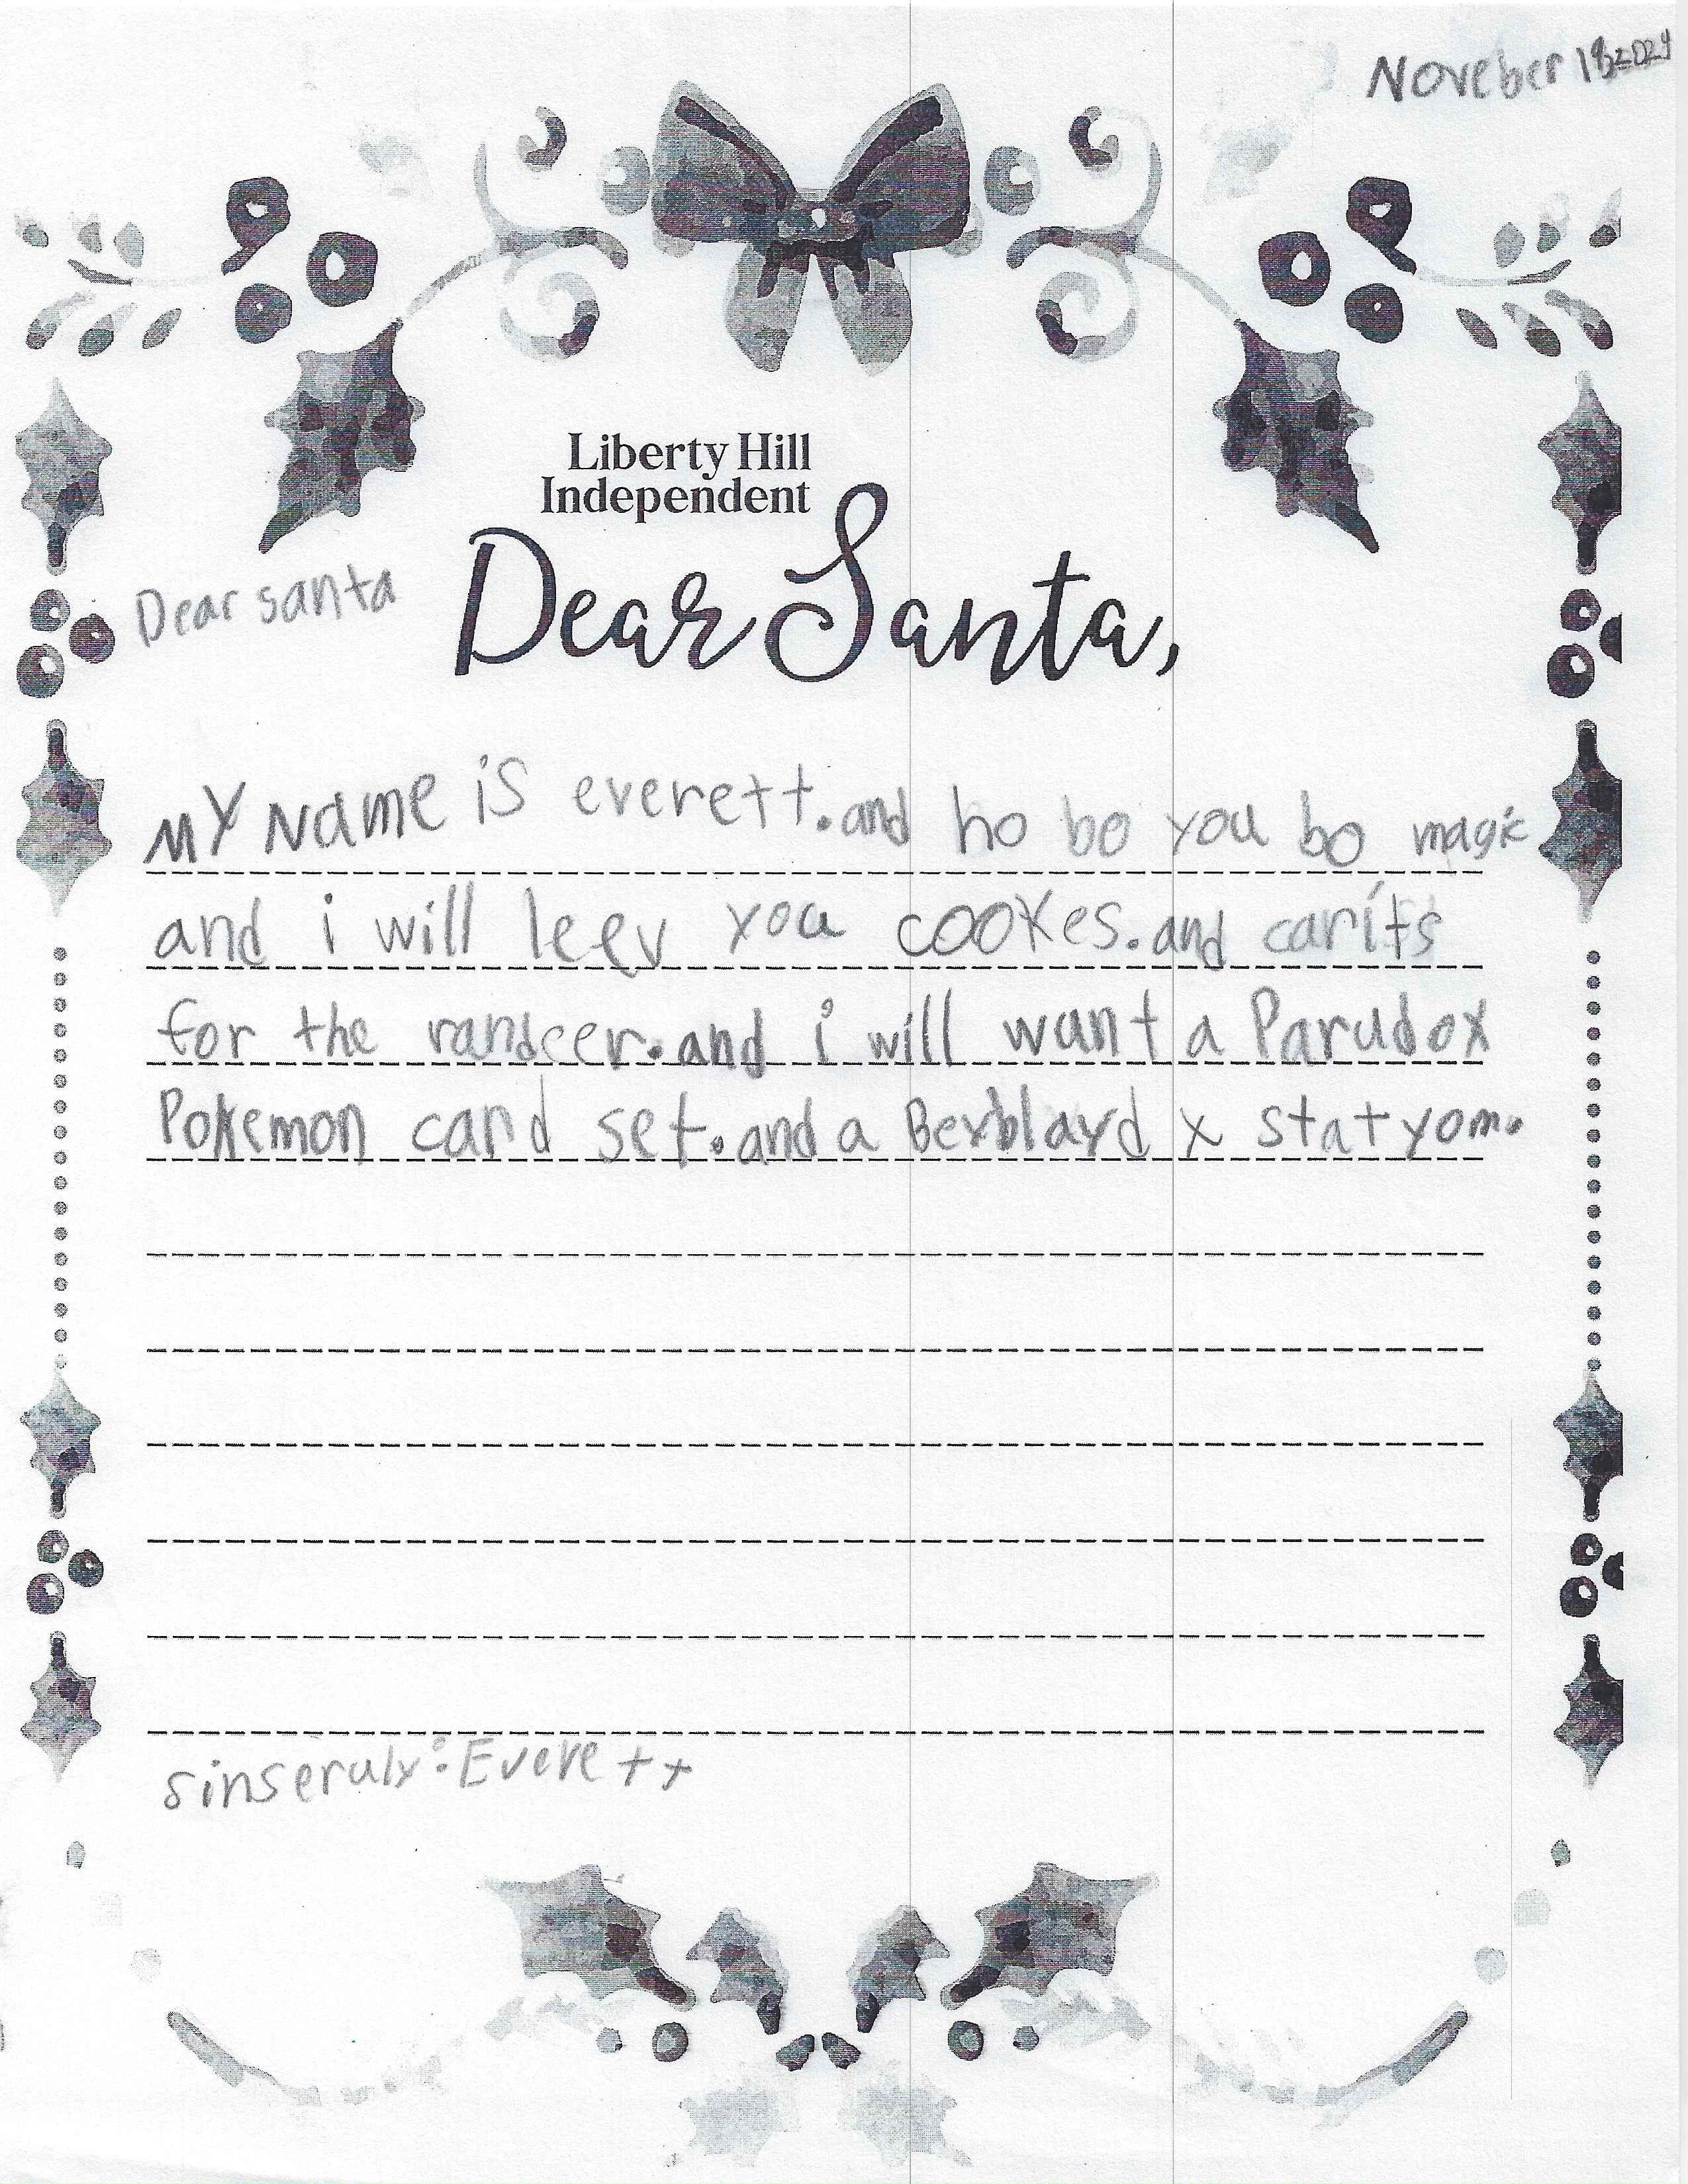 Noveber 19, 2024
Liberty Hill
Independent
Dear Santa,
Dear santa
MY Name is everett. and ho bo you bo magic
and i will leev you cookes. and carits
for the randeer. and i will want a Parudox
Pokemon card set. and a Beyblayd x statyom.
sinseruly: Everett